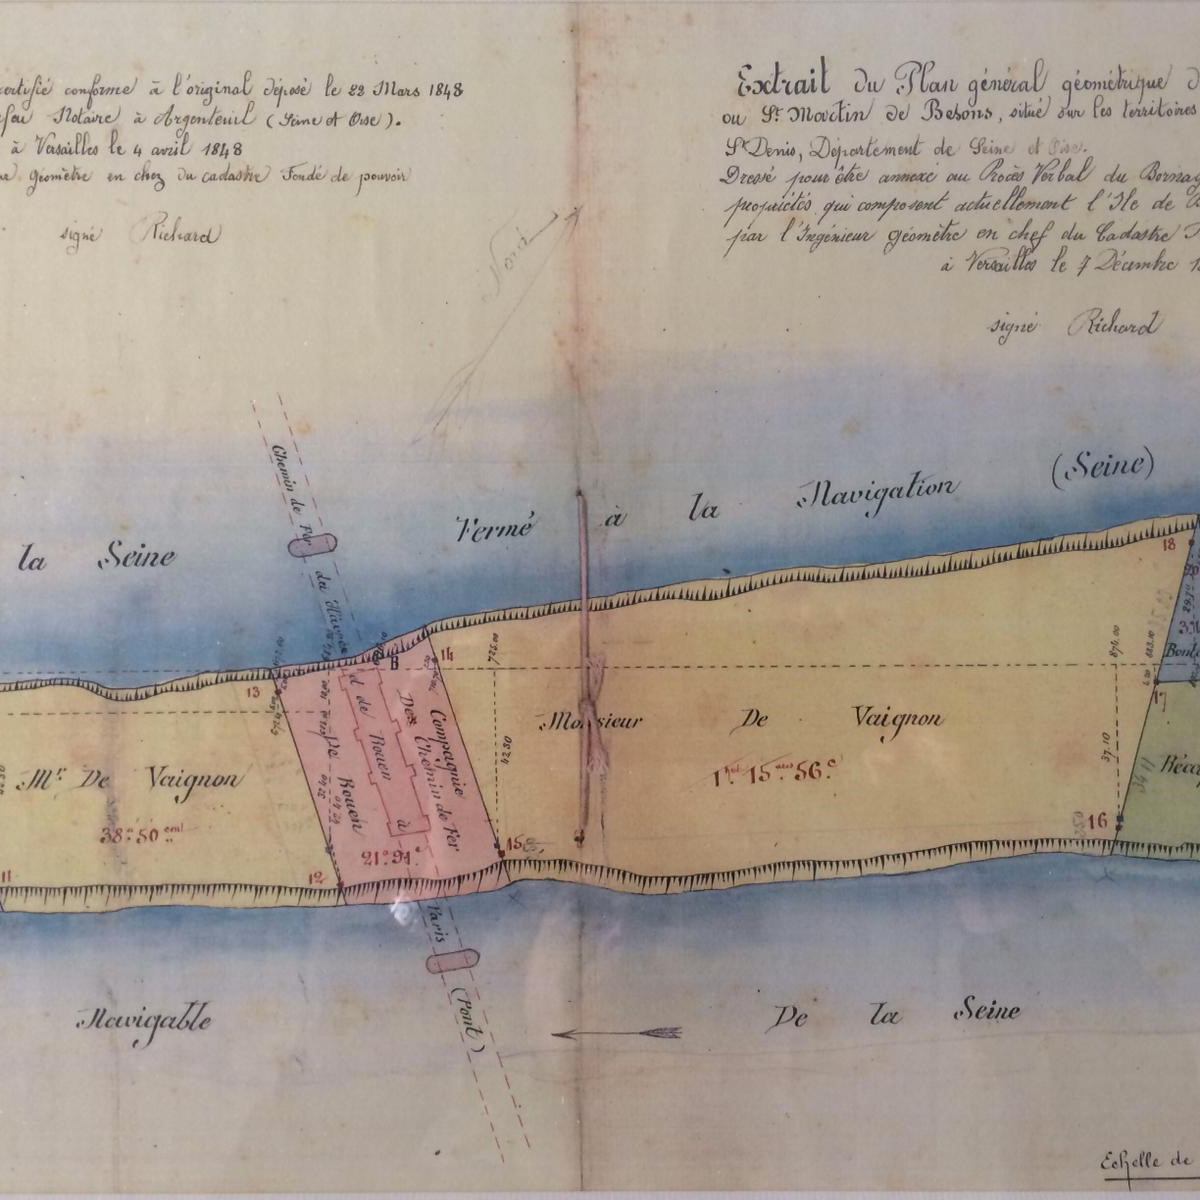 certifié conforme à l'original déposé le 22 Mars 1848
Notaire à Argenteuil (Seine et Oise).
à Versailles le 4 avril 1848
Géomètre en chez du cadastre Fondé de pouvoir
signé Richard
Extrait du Plan général géométrique d
ou St. Martin de Besons, situé sur les territoires
St Denis, Département de Seine et Oise.
Dressé pour être annexé au Procès Verbal du Bornag
propriétés qui composent actuellement l'Ile de
par l'Ingénieur géomètre en chef du Cadastre
à Versailles le 7 Décembre 1
signé Richard
Nord
la Seine
Fermé à la Navigation (Seine)
Chemin de Fer du Hâvre
et de Rouen à
De Rouen
Paris
(Pont)
Compagnie
Des Chemin de Fer
21ª 91ᶜ
Mr. De Vaignon
38ª 50 cent
Monsieur De Vaignon
1 hect 15 ares 56 c
13
B
14
725.00
42.80
11
12
15
16
17
18
874.00
37.10
Navigable
De la Seine
Echelle de